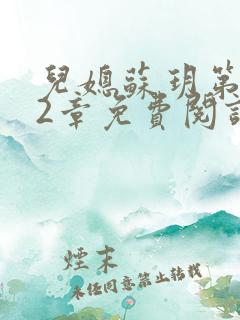 兒媳蘇玥第
2章免費閱讀
煙末
未任同意禁止轉載